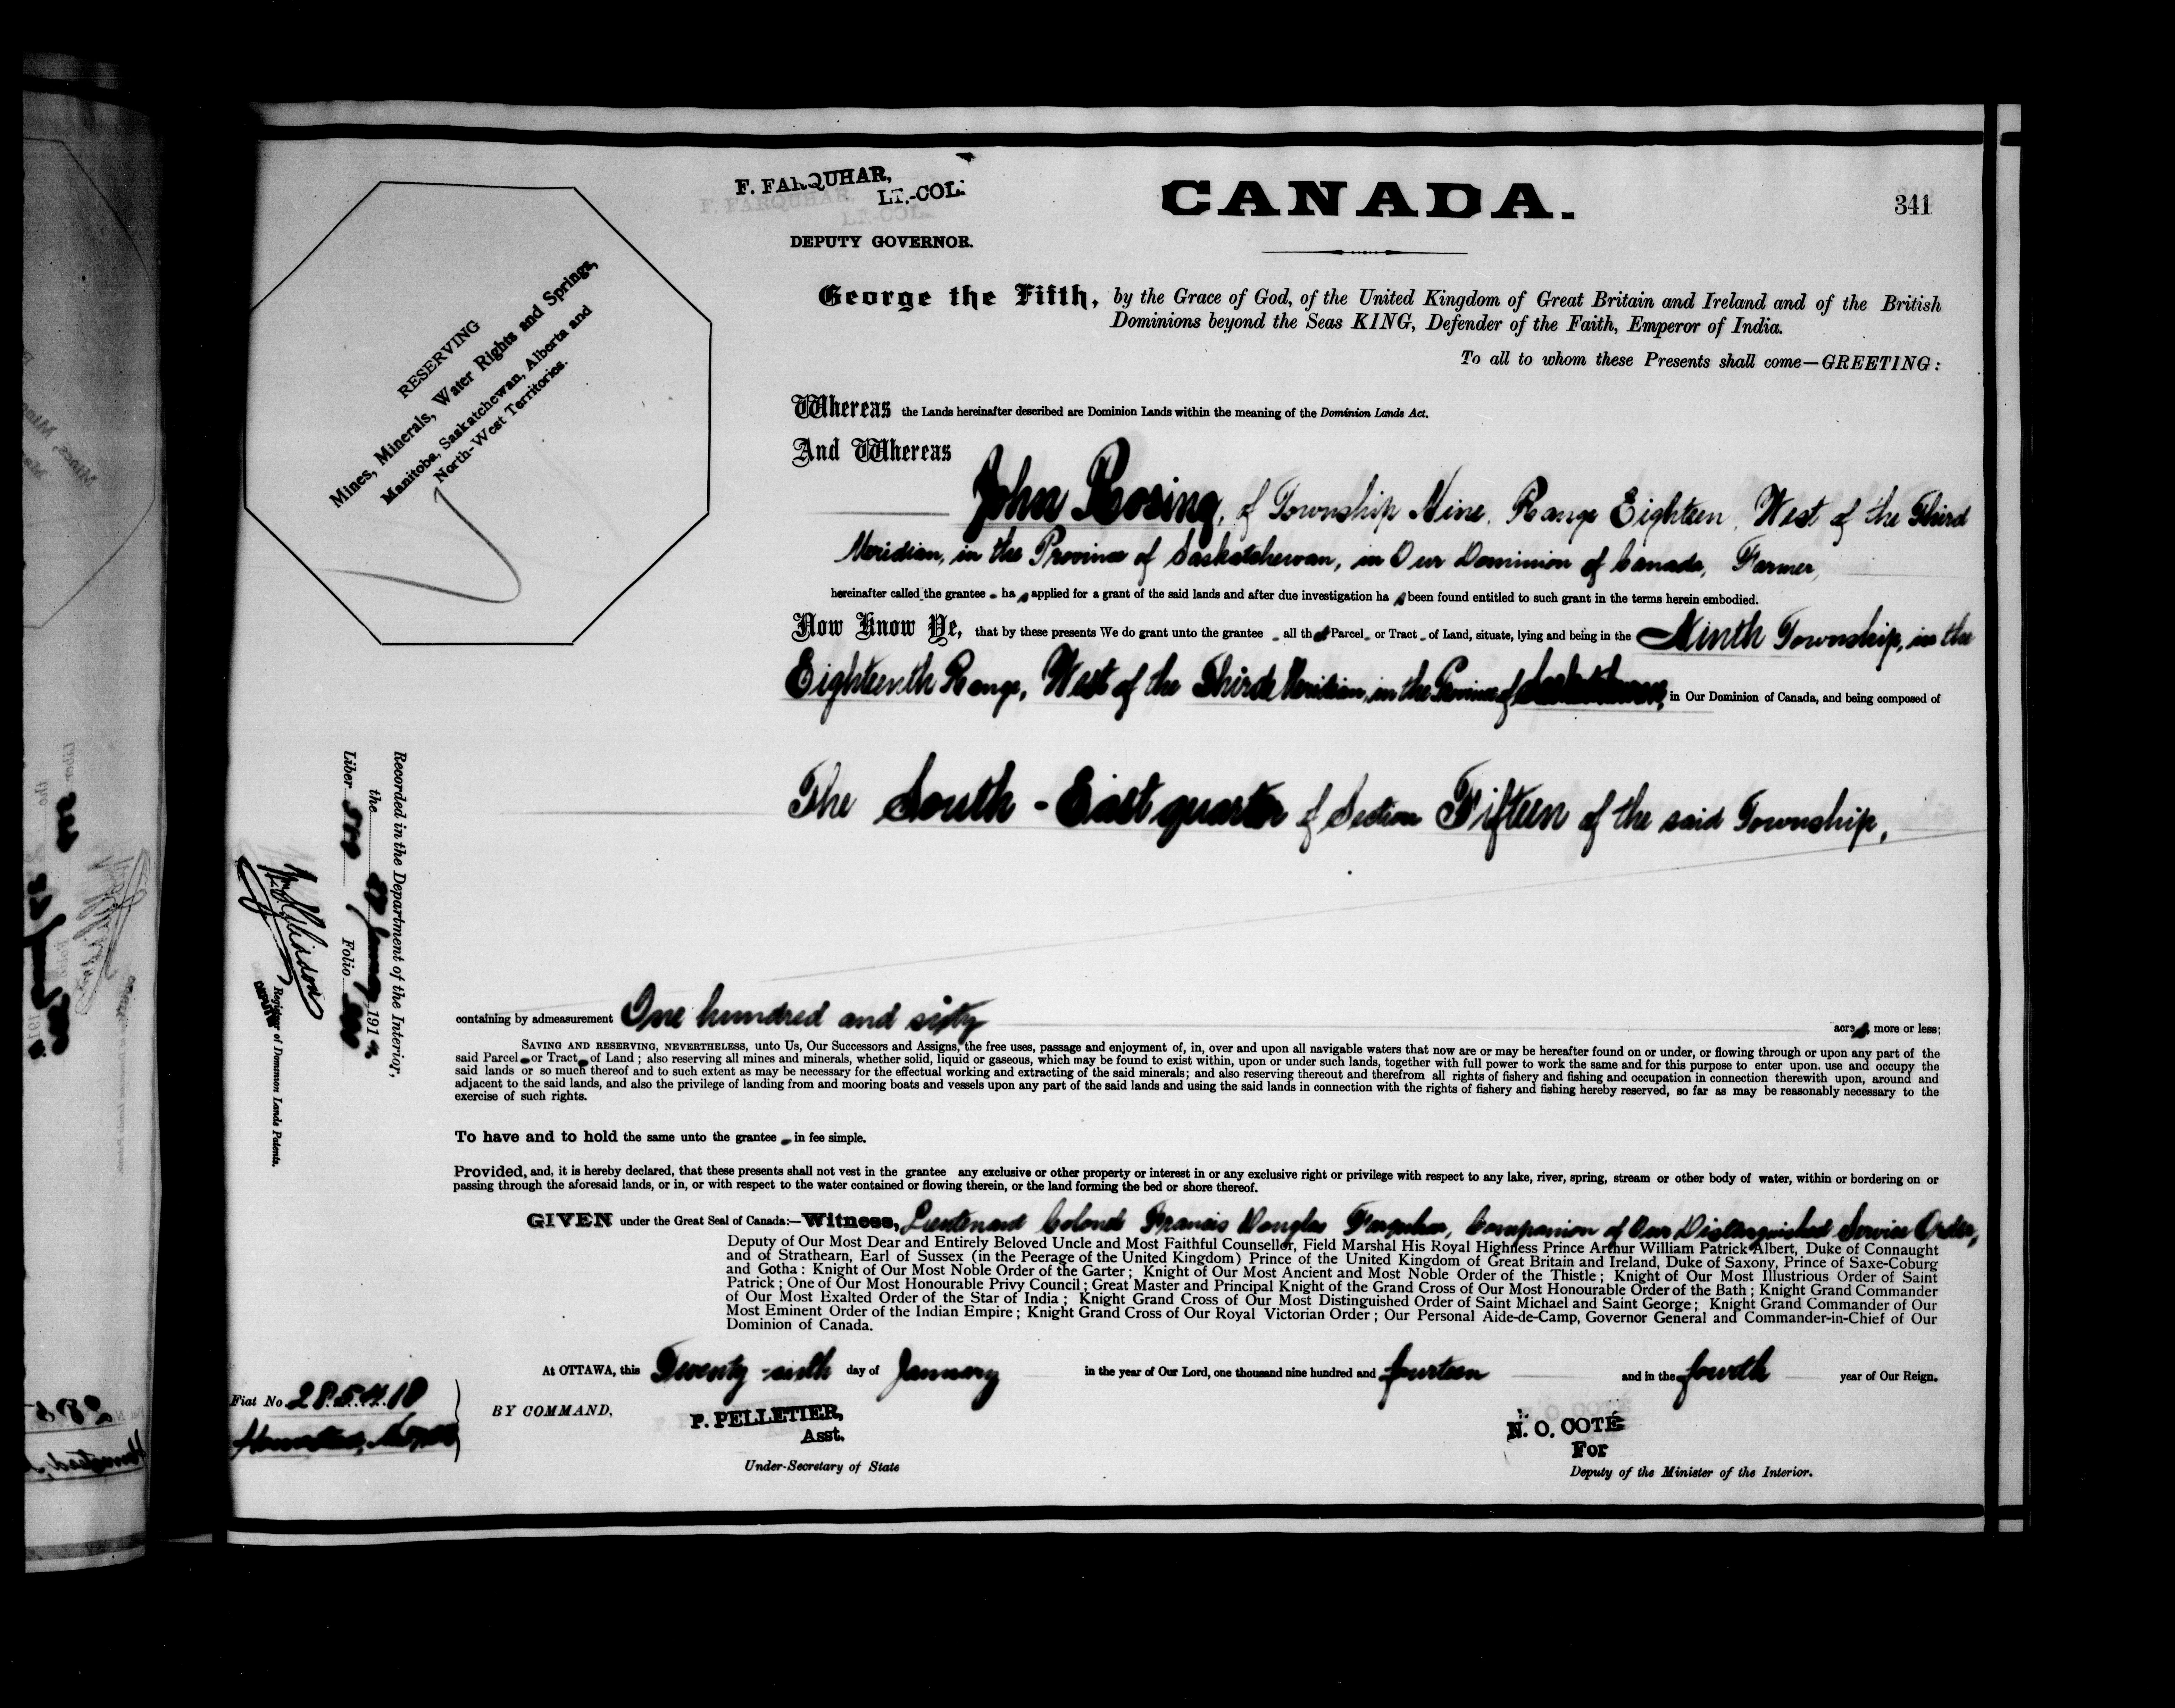 F. FARQUHAR,
LT.-COL.
DEPUTY GOVERNOR.
CANADA.
341
RESERVING
Mines, Minerals, Water Rights and Springs,
Manitoba, Saskatchewan, Alberta and
North-West Territories.
George the Fifth, by the Grace of God, of the United Kingdom of Great Britain and Ireland and of the British
Dominions beyond the Seas KING, Defender of the Faith, Emperor of India.
To all to whom these Presents shall come—GREETING:
Whereas the Lands hereinafter described are Dominion Lands within the meaning of the Dominion Lands Act.
And Whereas
John Rosing, of Township Nine, Range Eighteen, West of the Third
Meridian, in the Province of Saskatchewan, in Our Dominion of Canada, Farmer,
hereinafter called the grantee ha s applied for a grant of the said lands and after due investigation ha s been found entitled to such grant in the terms herein embodied.
Now Know Ye, that by these presents We do grant unto the grantee all that Parcel or Tract of Land, situate, lying and being in the Ninth Township, in the
Eighteenth Range, West of the Third Meridian, in the Province of Saskatchewan, in Our Dominion of Canada, and being composed of
The South-East quarter of Section Fifteen of the said Township,
Recorded in the Department of the Interior,
the January 1914
Liber Folio
Registrar of Dominion Lands Patents.
DEPUTY
containing by admeasurement One hundred and sixty acres, more or less;
SAVING AND RESERVING, NEVERTHELESS, unto Us, Our Successors and Assigns, the free uses, passage and enjoyment of, in, over and upon all navigable waters that now are or may be hereafter found on or under, or flowing through or upon any part of the
said Parcel or Tract of Land; also reserving all mines and minerals, whether solid, liquid or gaseous, which may be found to exist within, upon or under such lands, together with full power to work the same and for this purpose to enter upon. use and occupy the
said lands or so much thereof and to such extent as may be necessary for the effectual working and extracting of the said minerals; and also reserving thereout and therefrom all rights of fishery and fishing and occupation in connection therewith upon, around and
adjacent to the said lands, and also the privilege of landing from and mooring boats and vessels upon any part of the said lands and using the said lands in connection with the rights of fishery and fishing hereby reserved, so far as may be reasonably necessary to the
exercise of such rights.
To have and to hold the same unto the grantee in fee simple.
Provided, and, it is hereby declared, that these presents shall not vest in the grantee any exclusive or other property or interest in or any exclusive right or privilege with respect to any lake, river, spring, stream or other body of water, within or bordering on or
passing through the aforesaid lands, or in, or with respect to the water contained or flowing therein, or the land forming the bed or shore thereof.
GIVEN under the Great Seal of Canada:—Witness, Lieutenant Colonel Francis Douglas Farquhar, Companion of Our Distinguished Service Order,
Deputy of Our Most Dear and Entirely Beloved Uncle and Most Faithful Counsellor, Field Marshal His Royal Highness Prince Arthur William Patrick Albert, Duke of Connaught
and of Strathearn, Earl of Sussex (in the Peerage of the United Kingdom) Prince of the United Kingdom of Great Britain and Ireland, Duke of Saxony, Prince of Saxe-Coburg
and Gotha: Knight of Our Most Noble Order of the Garter; Knight of Our Most Ancient and Most Noble Order of the Thistle; Knight of Our Most Illustrious Order of Saint
Patrick; One of Our Most Honourable Privy Council; Great Master and Principal Knight of the Grand Cross of Our Most Honourable Order of the Bath; Knight Grand Commander
of Our Most Exalted Order of the Star of India; Knight Grand Cross of Our Most Distinguished Order of Saint Michael and Saint George; Knight Grand Commander of Our
Most Eminent Order of the Indian Empire; Knight Grand Cross of Our Royal Victorian Order; Our Personal Aide-de-Camp, Governor General and Commander-in-Chief of Our
Dominion of Canada.
At OTTAWA, this Twenty-sixth day of January in the year of Our Lord, one thousand nine hundred and fourteen and in the fourth year of Our Reign.
Fiat No. 285418
Homestead,
BY COMMAND,
P. PELLETIER,
Asst.
Under-Secretary of State
N. O. COTÉ
For
Deputy of the Minister of the Interior.